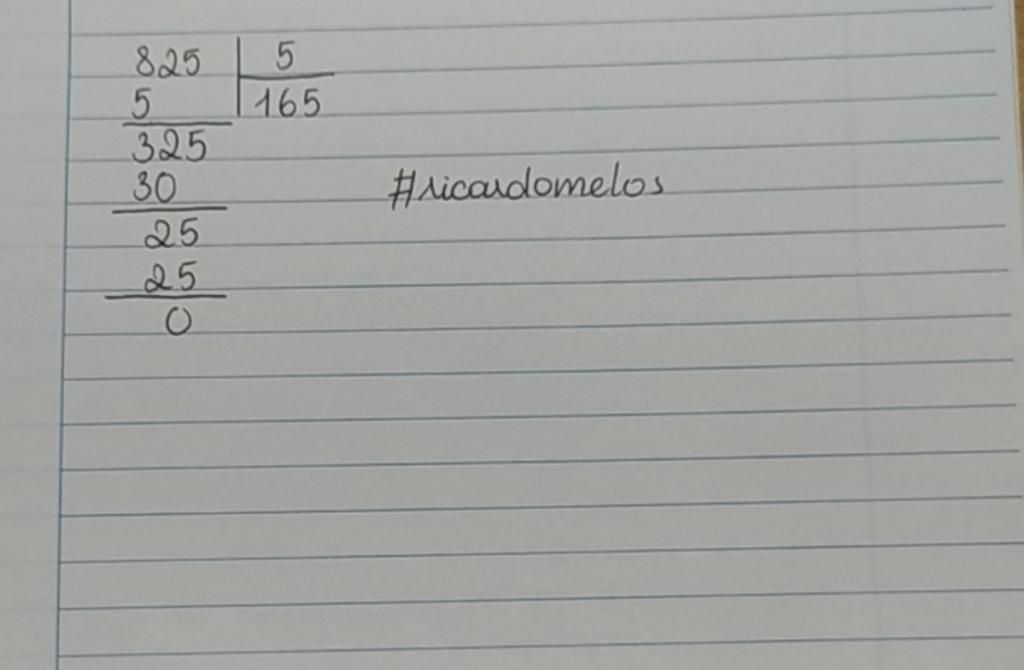 825 5
5 165
325
30 #ricardomelos
25
25
0